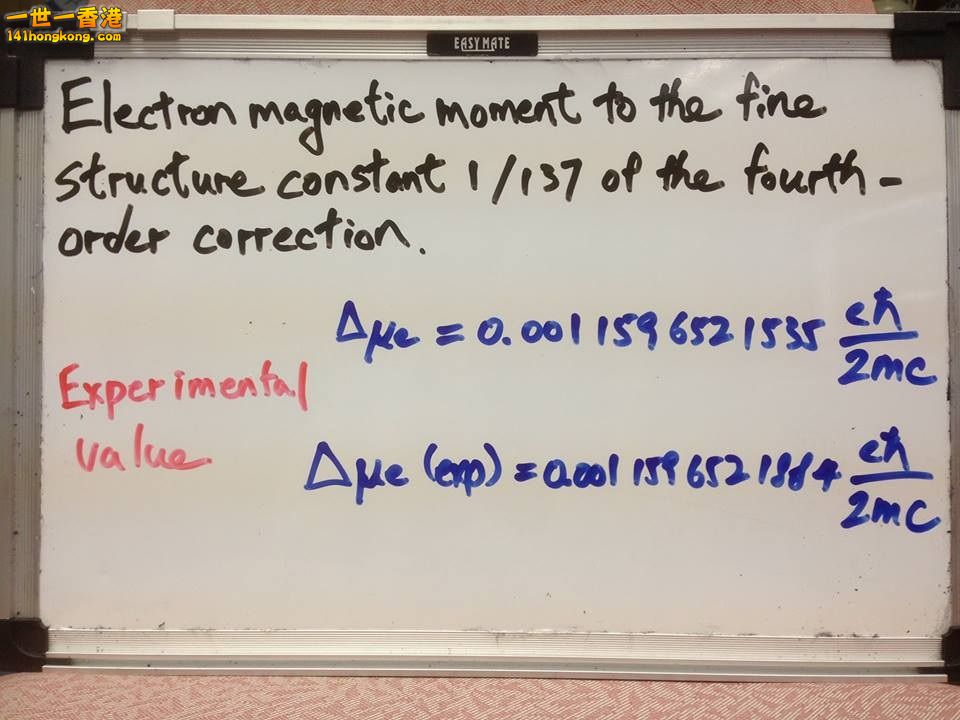 一世一香港
141hongkong.com
EASYMATE
Electron magnetic moment to the fine
structure constant 1/137 of the fourth-
order correction.
Δμe = 0.0011596521535 eħ/2mc
Experimental
value
Δμe (exp) = 0.0011596521884 eħ/2mc